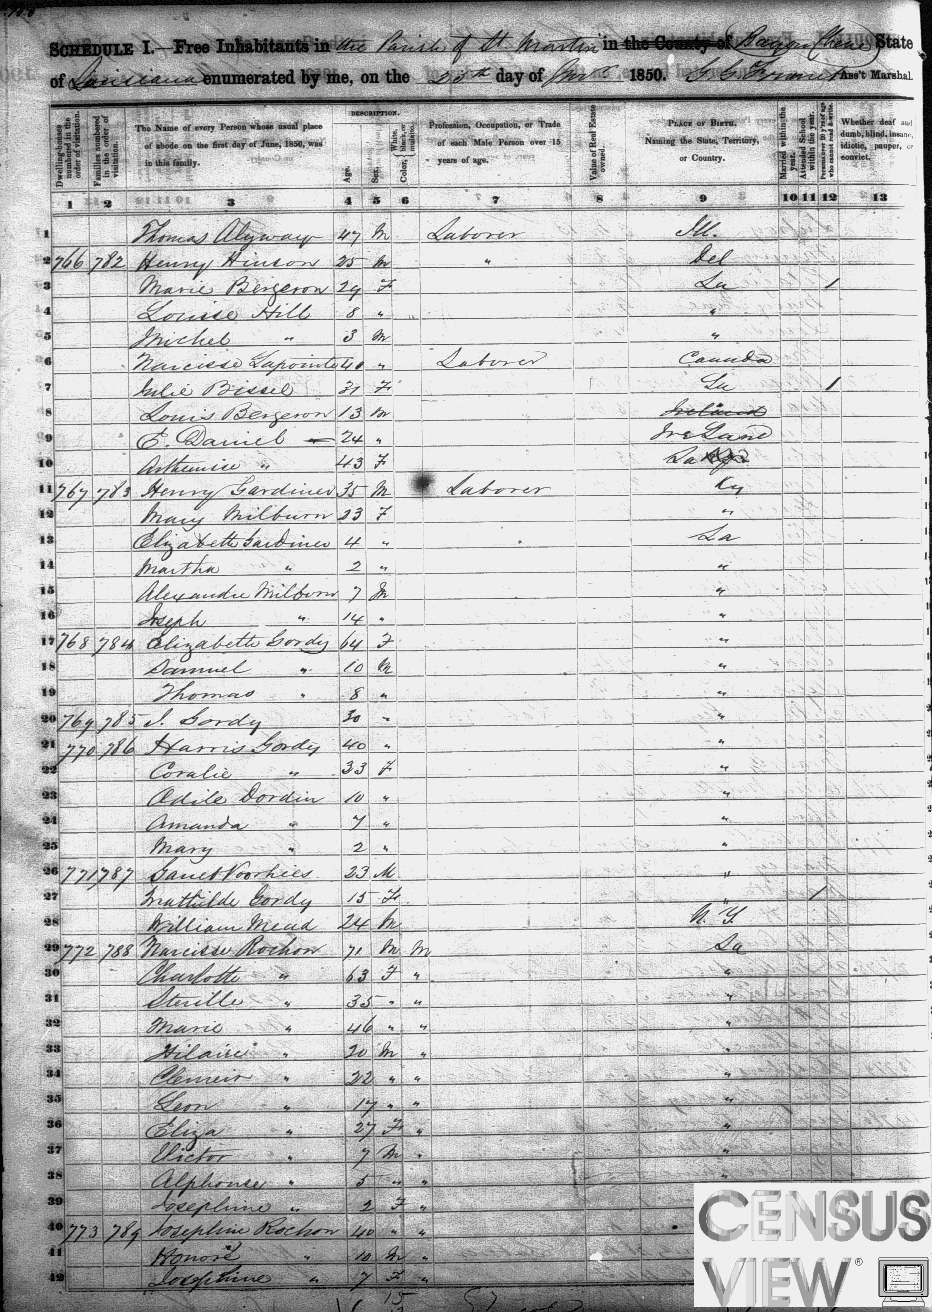 SCHEDULE I.—Free Inhabitants in the Parish of St Martin in the County of State
of Louisiana enumerated by me, on the 20th day of 1850. Ass't Marshal.
Dwelling-houses numbered in the order of visitation.
Families numbered in the order of visitation.
The Name of every Person whose usual place of abode on the first day of June, 1850, was in this family.
DESCRIPTION.
Age.
Sex.
Color, White, black, or mulatto.
Profession, Occupation, or Trade of each Male Person over 15 years of age.
Value of Real Estate owned.
PLACE OF BIRTH. Naming the State, Territory, or Country.
Married within the year.
Attended School within the year.
Persons over 20 y'rs of age who cannot read & write.
Whether deaf and dumb, blind, insane, idiotic, pauper, or convict.
1 2 3 4 5 6 7 8 9 10 11 12 13
1 Thomas 47 M Laborer Ill.
2 766 782 Henry Hinson 25 M " Del
3 Marie Bergeron 29 F La 1
4 Louise Hill 8 " "
5 Michel " 3 M "
6 Narcisse Lapointe 40 " Laborer Canada
7 Julie Bissel 31 F La 1
8 Louis Bergeron 13 M Ireland
9 E. Daniel 24 " Ireland
10 " 43 F La
11 767 783 Henry Gardiner 35 M Laborer Ky
12 Mary Milburn 23 F "
13 Elizabeth Gardiner 4 " La
14 Martha " 2 " "
15 Alexandre Milburn 7 M "
16 Joseph " 14 " "
17 768 784 Elizabeth Gordy 64 F "
18 Samuel " 10 M "
19 Thomas " 8 " "
20 769 785 Gordy 30 " "
21 770 786 Harris Gordy 40 " "
22 Coralie " 33 F "
23 Odile Dordin 10 " "
24 Amanda " 7 " "
25 Mary " 2 " "
26 771 787 Voorhies 23 M "
27 Mathilde Gordy 15 F " 1
28 William Mead 24 M N.Y.
29 772 788 Narcisse Rochon 71 M M La
30 Charlotte " 63 F " "
31 Sterille " 35 " " "
32 Marie " 46 " " "
33 Hilaire " 20 M " "
34 " 22 " " "
35 Leon " 17 " " "
36 Eliza " 27 F " "
37 Victor " 7 M " "
38 Alphonse " 5 " " "
39 Josephine " 2 F "
40 773 789 Josephine Rochon 40 " "
41 Honoré " 10 M "
42 Josephine " 7 F "
15
CENSUS
VIEW®